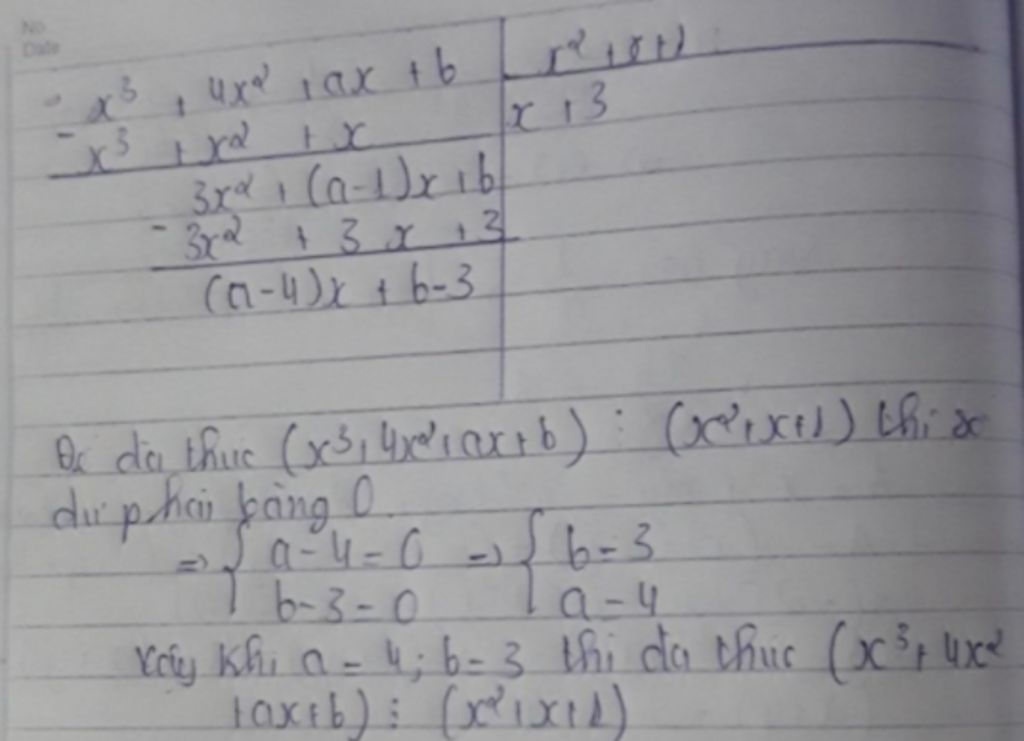 No.
Date
- x³ + 4x² + ax + b | x² + x + 1
- x³ + x² + x | x + 3
3x² + (a-1)x + b
- 3x² + 3x + 3
(a-4)x + b-3
Để đa thức (x³+4x²+ax+b) ⋮ (x²+x+1) thì số
dư phải bằng 0.
=> { a-4=0 => { b=3
b-3=0 a=4
Vậy khi a=4; b=3 thì đa thức (x³+4x²
+ax+b) ⋮ (x²+x+1)